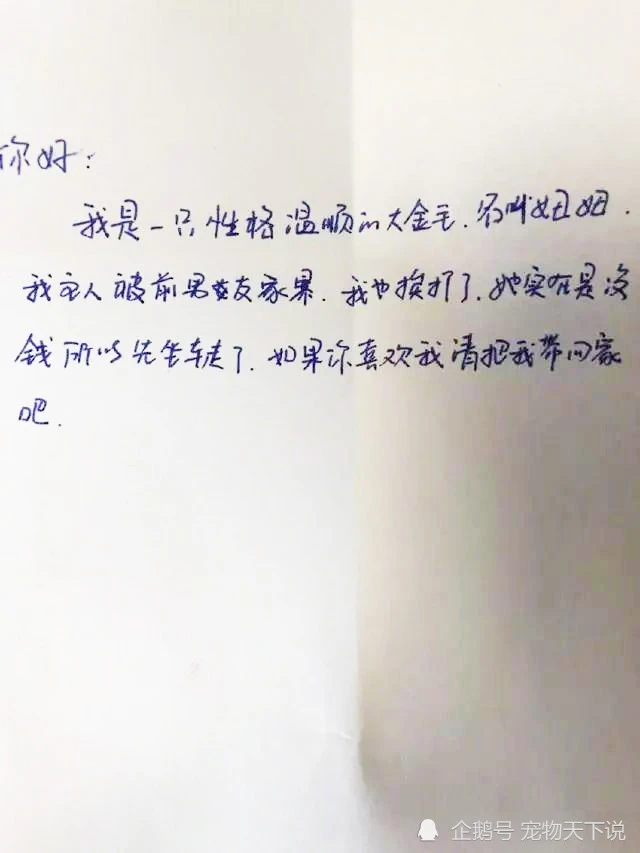 你好：
我是一只性格温顺的大金毛.名叫妞妞.
我主人被前男女友家暴.我也挨打了.她实在是没
钱所以先坐车走了.如果你喜欢我请把我带回家
吧.
企鹅号 宠物天下说